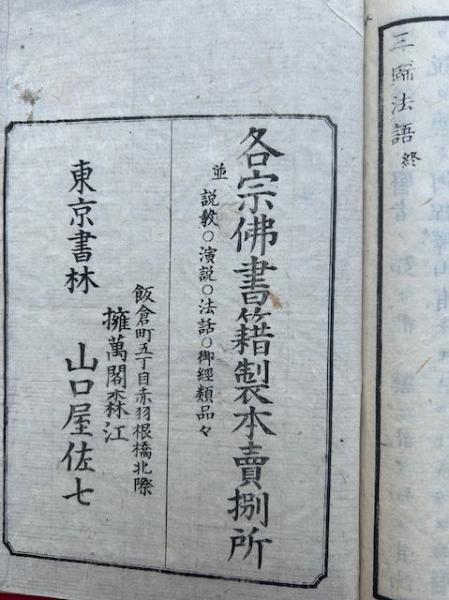 三歸法語終
各宗佛書籍製本賣捌所
並説教○演説○法話○御經類品々
飯倉町五丁目赤羽根橋北際
擁萬閣森江
東京書林 山口屋佐七